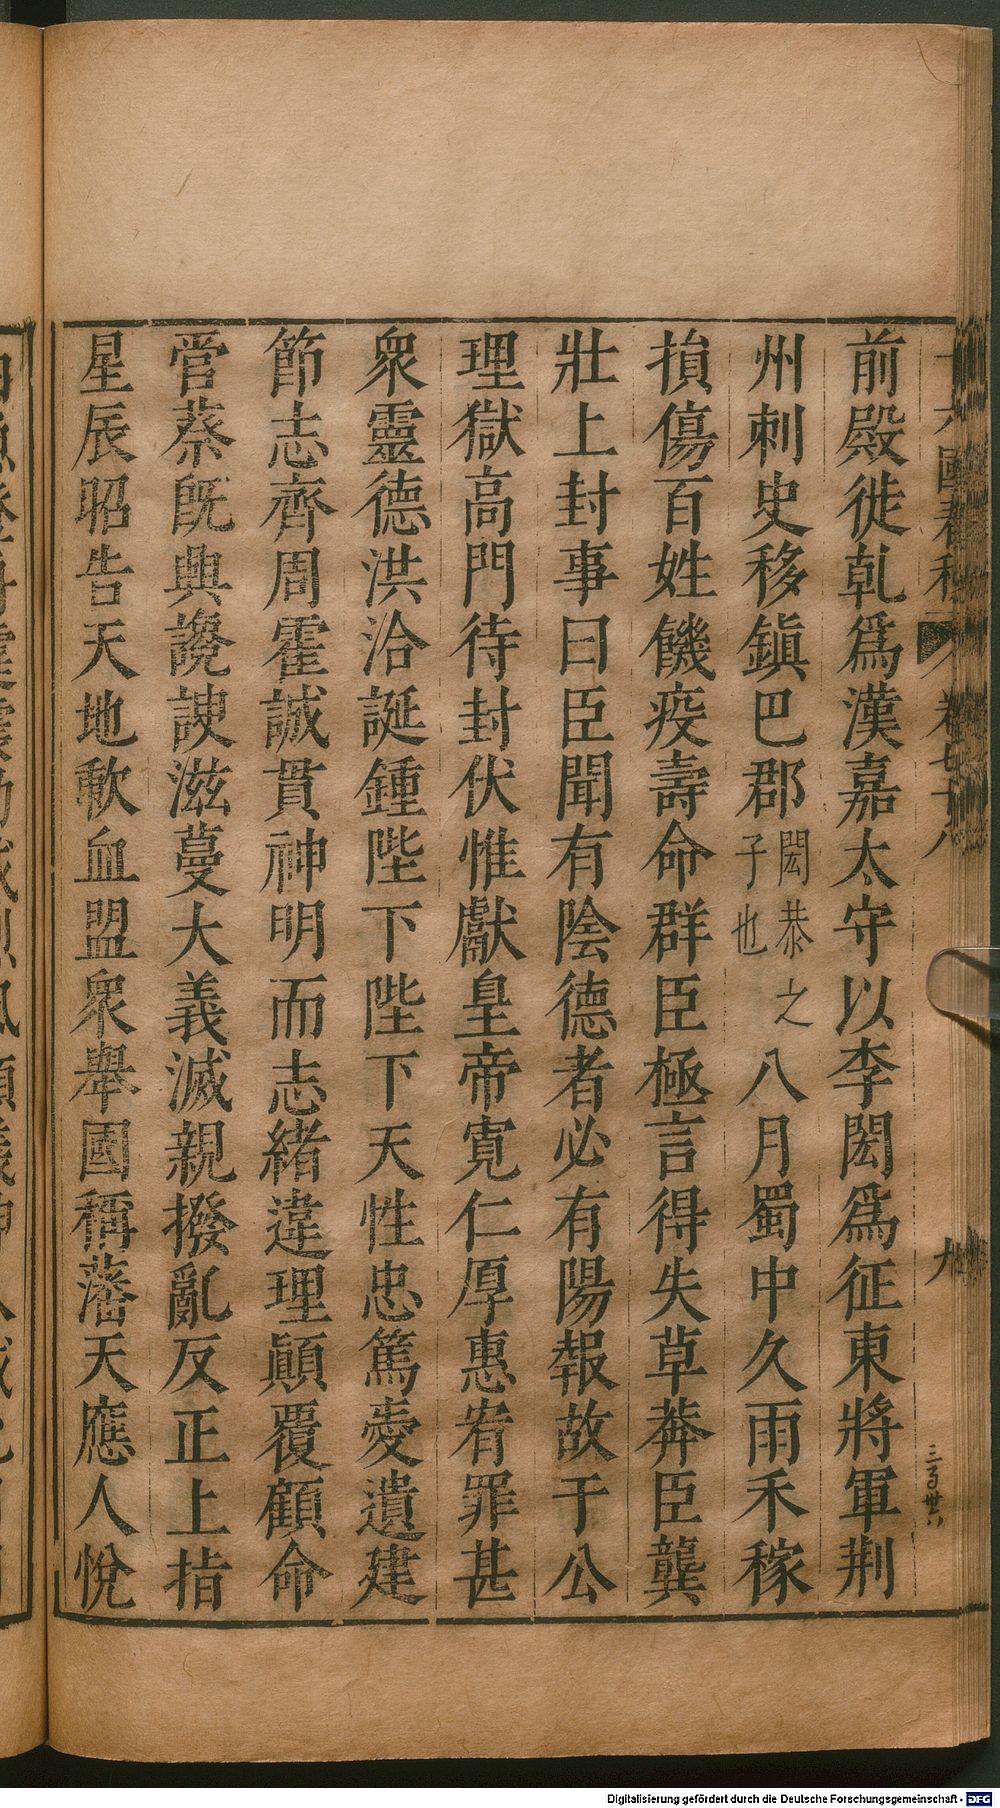 前殿徙乹爲漢嘉太守以李閎爲征東將軍荆
州刺史移鎭巴郡閎恭之子也八月蜀中久雨禾稼
損傷百姓饑疫壽命群臣極言得失草莾臣龔
壯上封事曰臣聞有陰德者必有陽報故于公
理獄高門待封伏惟獻皇帝寬仁厚惠宥罪甚
衆靈德洪洽誕鍾陛下陛下天性忠篤受遺建
節志齊周霍誠貫神明而志緒違理顚覆顧命
管蔡旣興讒諛滋蔓大義滅親撥亂反正上指
星辰昭告天地歃血盟衆舉國稱藩天應人悅
卷七十八
九
Digitalisierung gefördert durch die Deutsche Forschungsgemeinschaft - DFG